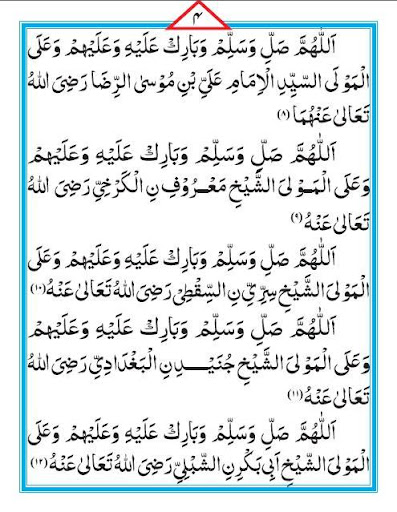 ۴
اَللّٰهُمَّ صَلِّ وَسَلِّمْ وَبَارِكْ عَلَيْهِ وَعَلَيْهِمْ وَعَلَى
الْمَوْلَى السَّيِّدِ الْاِمَامِ عَلِيِّ بْنِ مُوْسَى الرِّضَا رَضِىَ اللهُ
تَعَالٰى عَنْهُمَا (۸)
اَللّٰهُمَّ صَلِّ وَسَلِّمْ وَبَارِكْ عَلَيْهِ وَعَلَيْهِمْ
وَعَلَى الْمَوْلَى الشَّيْخِ مَعْرُوْفِ نِ الْكَرْخِيِّ رَضِىَ اللهُ
تَعَالٰى عَنْهُ (۹)
اَللّٰهُمَّ صَلِّ وَسَلِّمْ وَبَارِكْ عَلَيْهِ وَعَلَيْهِمْ وَعَلَى
الْمَوْلَى الشَّيْخِ سِرِّيِّ نِ السَّقْطِيِّ رَضِىَ اللهُ تَعَالٰى عَنْهُ (۱۰)
اَللّٰهُمَّ صَلِّ وَسَلِّمْ وَبَارِكْ عَلَيْهِ وَعَلَيْهِمْ
وَعَلَى الْمَوْلَى الشَّيْخِ جُنَيْدِ نِ الْبَغْدَادِيِّ رَضِىَ اللهُ
تَعَالٰى عَنْهُ (۱۱)
اَللّٰهُمَّ صَلِّ وَسَلِّمْ وَبَارِكْ عَلَيْهِ وَعَلَيْهِمْ وَعَلَى
الْمَوْلَى الشَّيْخِ اَبِىْ بَكْرِ نِ الشِّبْلِيِّ رَضِىَ اللهُ تَعَالٰى عَنْهُ (۱۲)